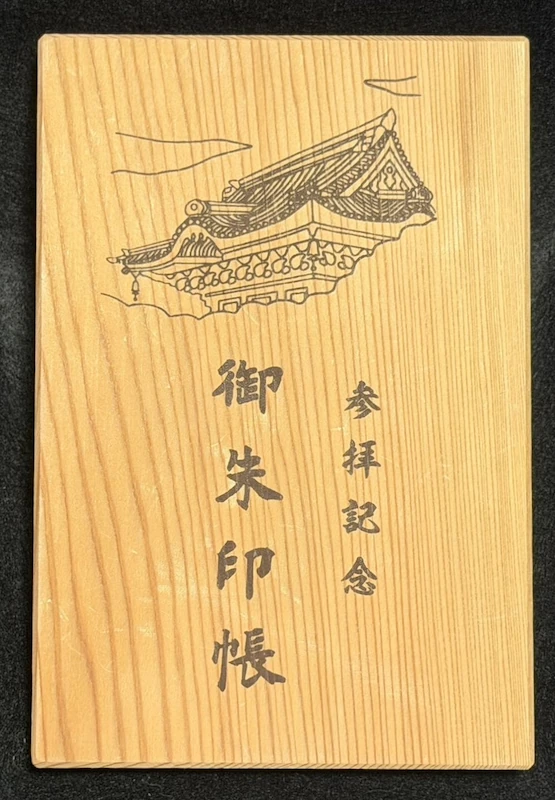 参拝記念
御朱印帳